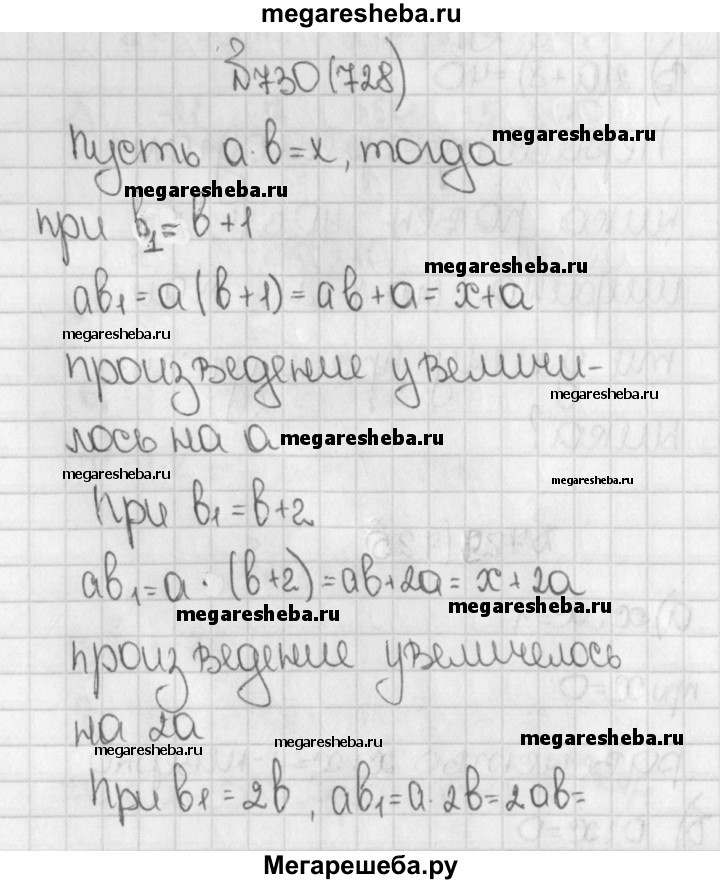 megaresheba.ru
№730(728)
Пусть а·в=х, тогда megaresheba.ru
megaresheba.ru
при в₁=в+1
megaresheba.ru
ав₁=а(в+1)=ав+а=х+а
megaresheba.ru
произведение увеличи-
megaresheba.ru
лось на а megaresheba.ru
megaresheba.ru
megaresheba.ru
При в₁=в+2
ав₁=а·(в+2)=ав+2а=х+2а
megaresheba.ru megaresheba.ru
произведение увеличелось
на 2а
megaresheba.ru megaresheba.ru megaresheba.ru
При в₁=2в, ав₁=а·2в=2ав=
Мегарешеба.ру